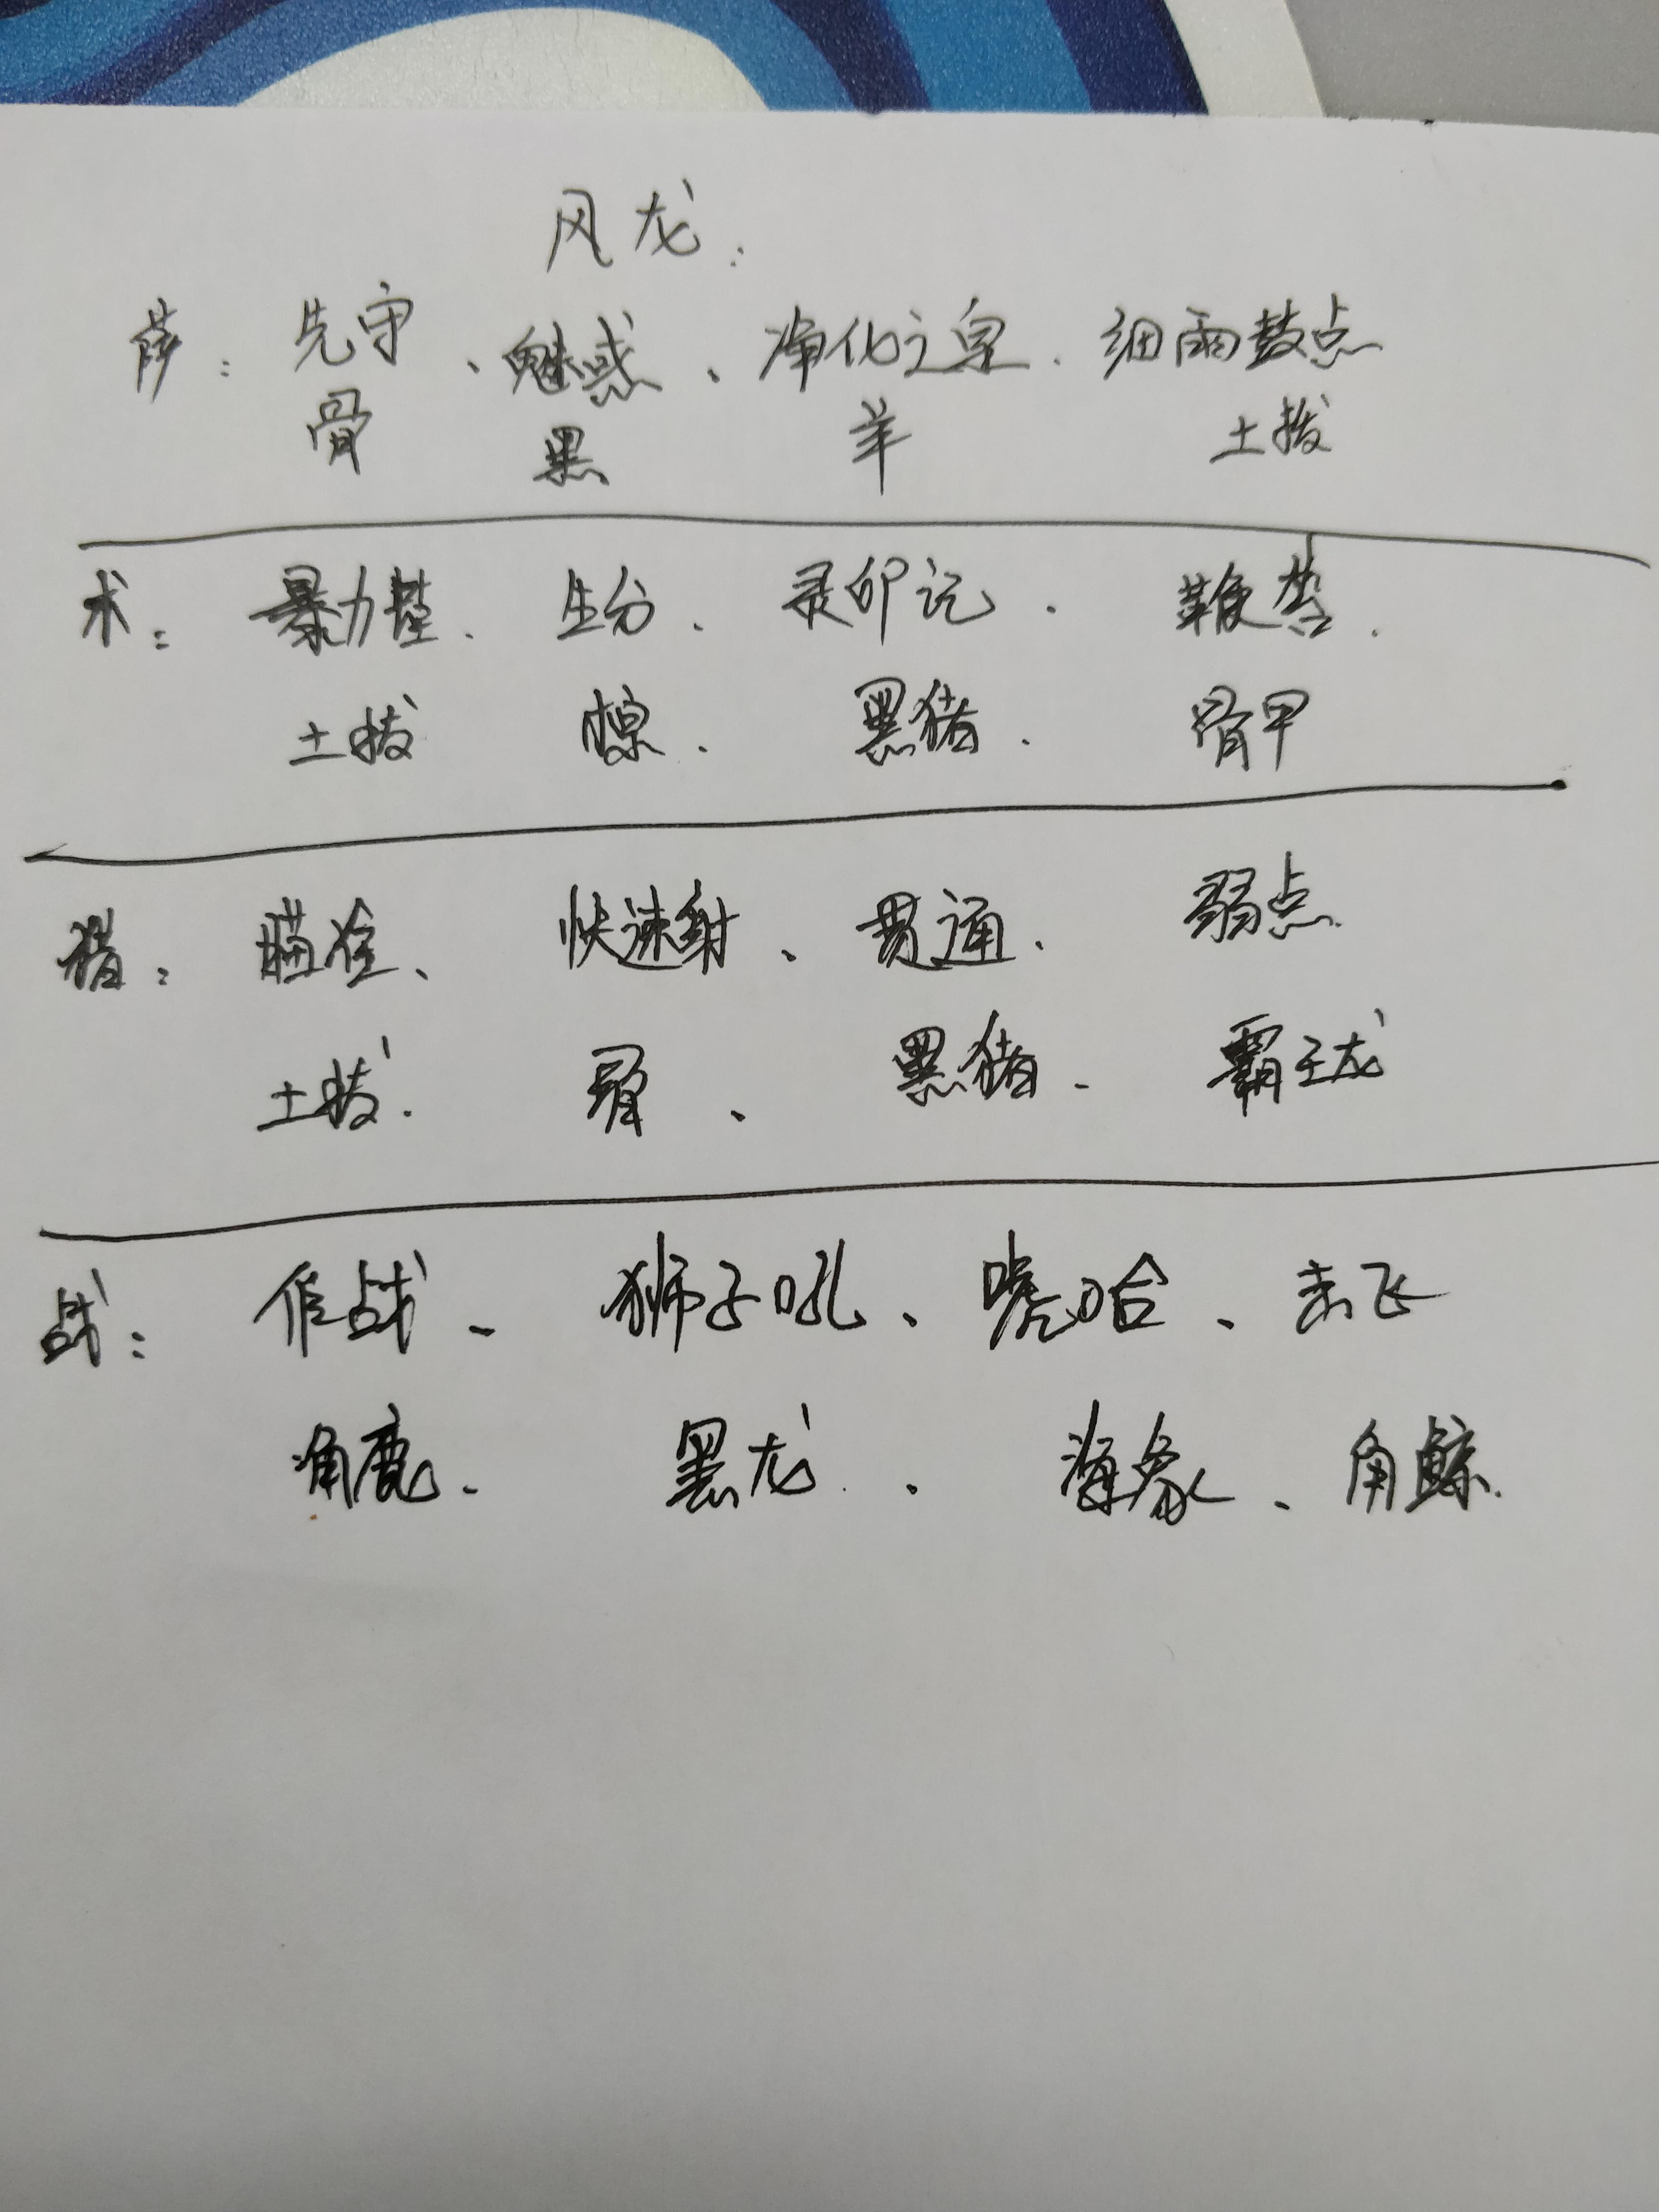 风龙:
萨: 先守、魅惑、净化之泉、细雨鼓点
骨 黑 羊 土拨
术: 暴力 生分、灵印记、鞭苔.
土拨 . 黑猪. 骨甲
猎: 瞄准、快速射、贯通、弱点.
土拨. 骨、黑猪. 霸王龙
战: 作战、狮子吼、唬哈、击飞
角鹿. 黑龙、海象、角鲸.